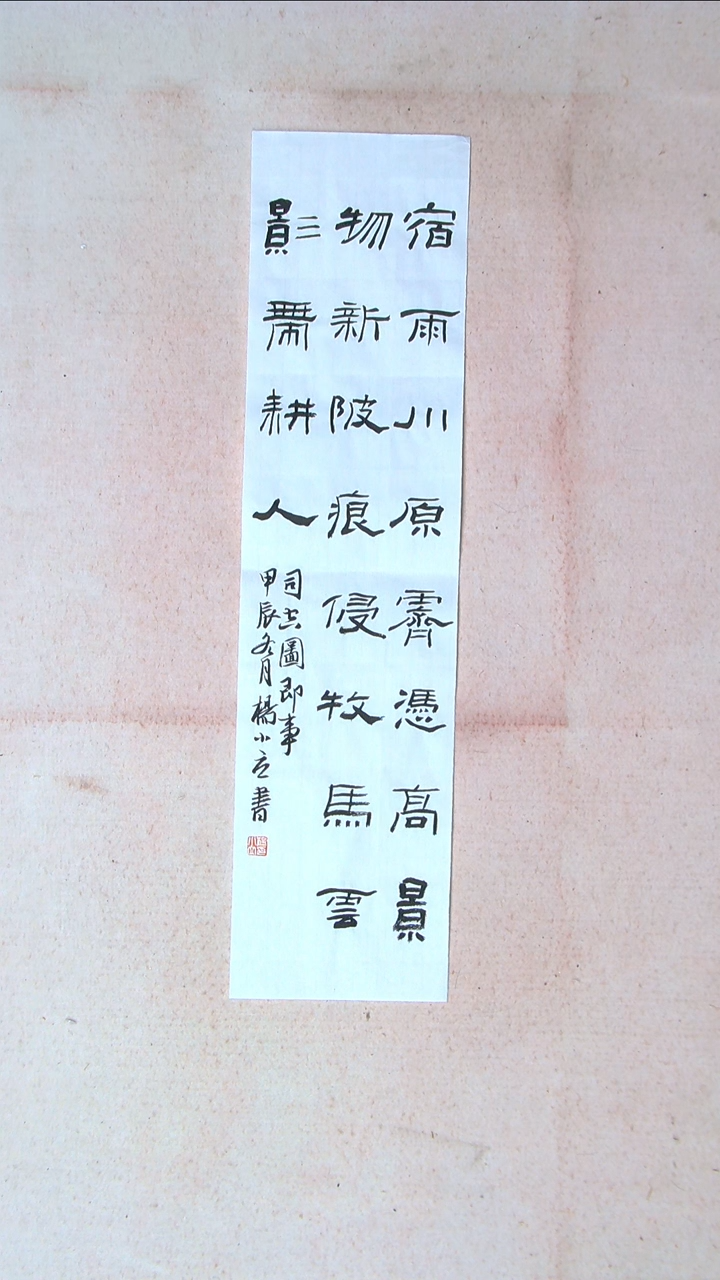 宿雨川原霽憑高景
物新陂痕侵牧馬雲
影帶耕人
司空圖即事
甲辰冬月楊小書